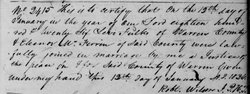 No. 2415 This is to certify that on the 12th day of
January in the year of our Lord eighteen hund-
red & twenty six Silas Tuttle of Warren County
& Eleanor M. Perrin of said County were law-
fully joined in marriage by me a Justice of
the peace in & for said County of Warren Given
under my hand this 12th day of January 1826
Robt. Wilson J.P.